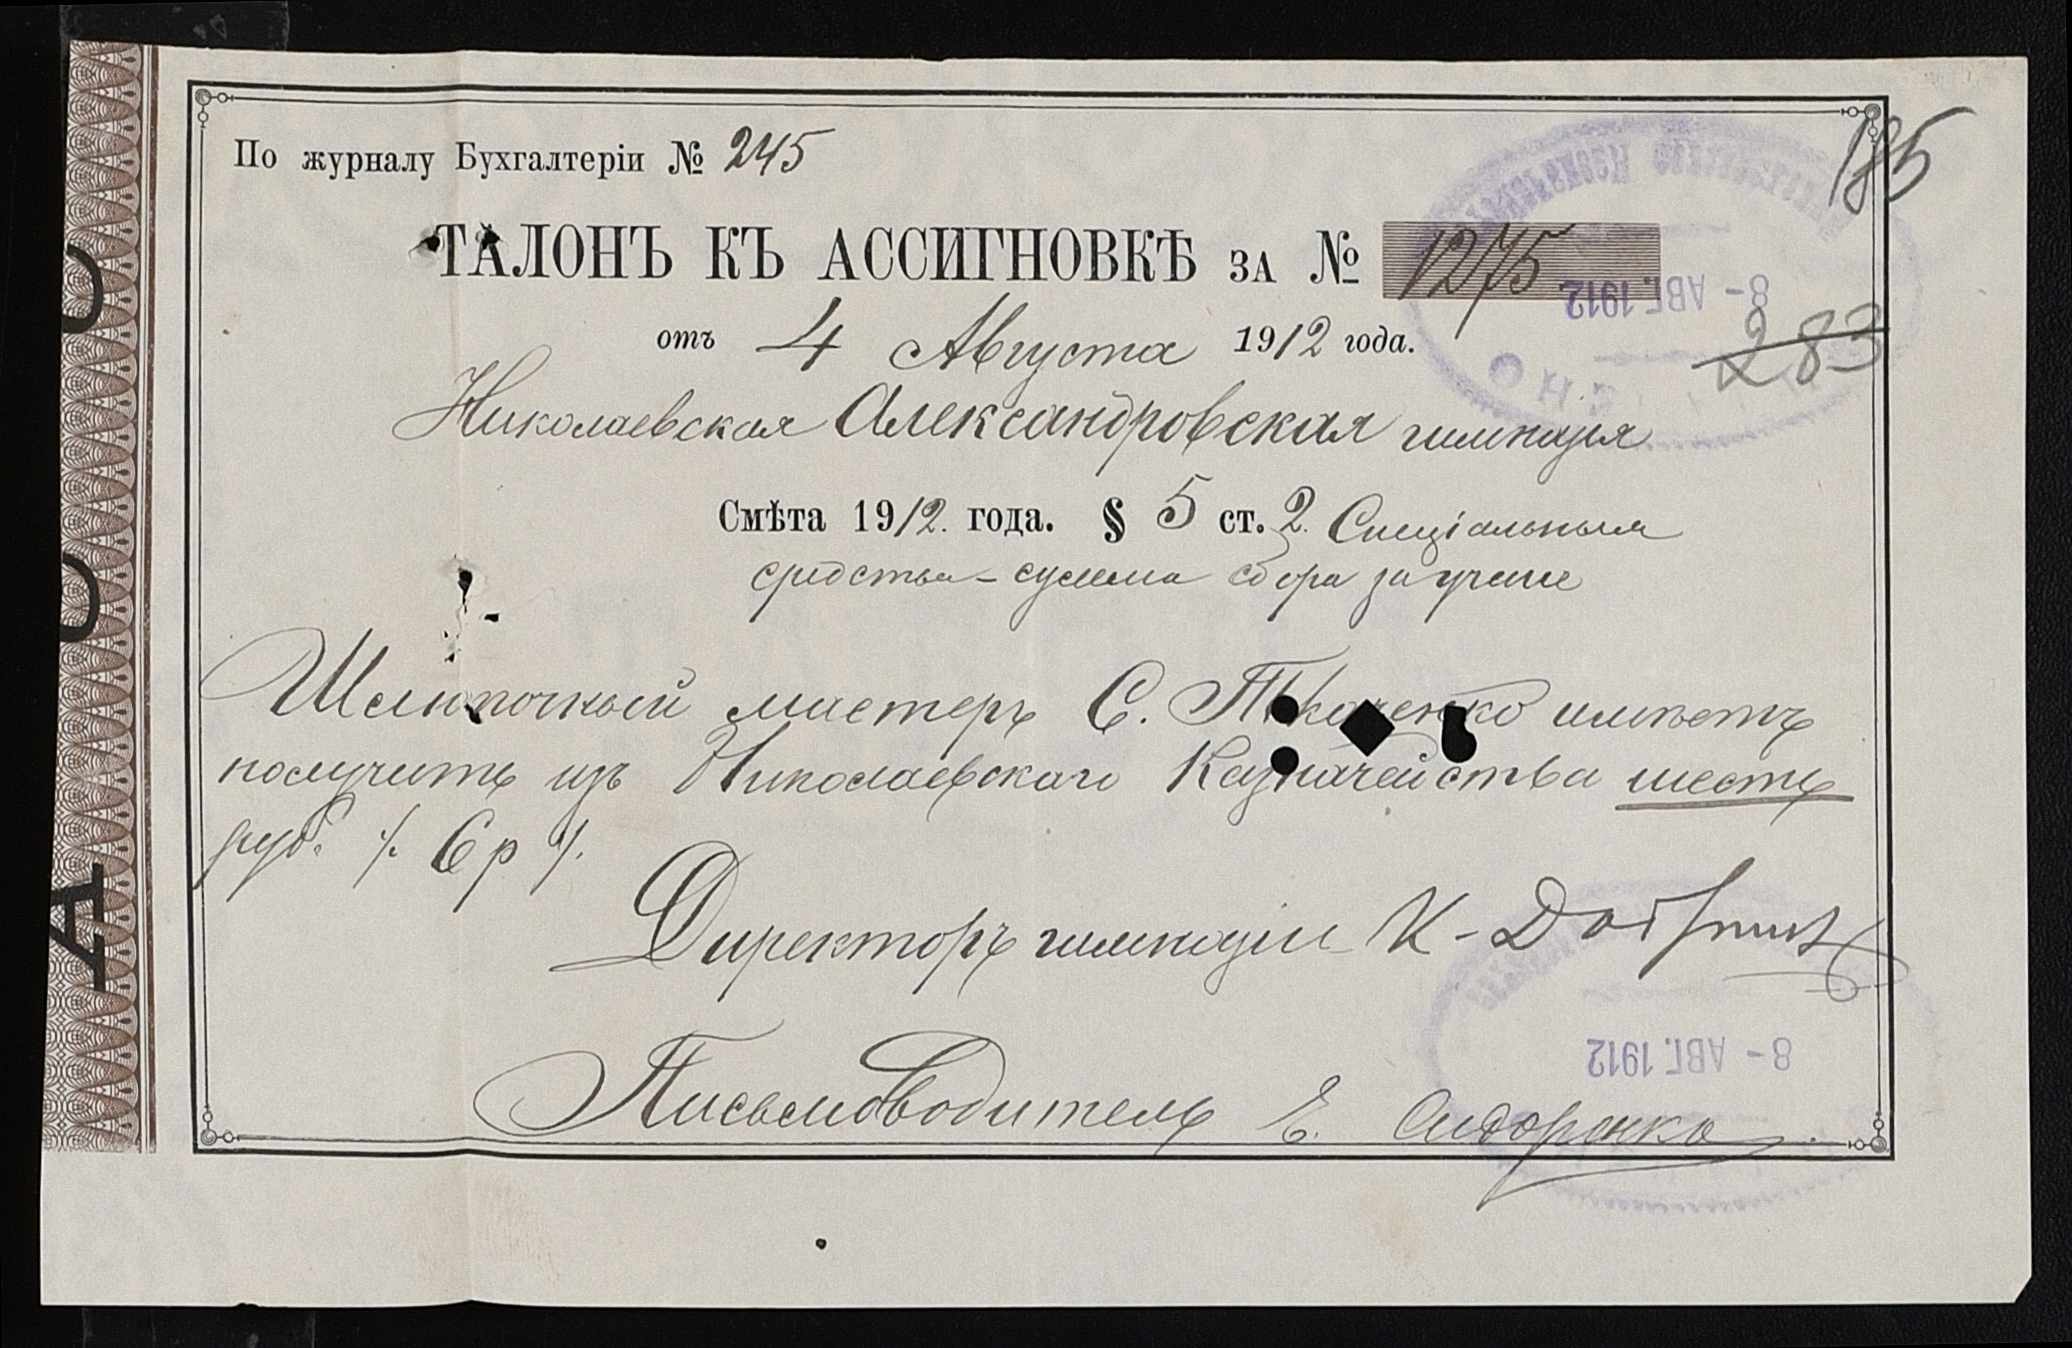 185
По журналу Бухгалтеріи № 245
ТАЛОНЪ КЪ АССИГНОВКѢ ЗА № 1275
8 - АВГ. 1912
отъ 4 Августа 1912 года.
283
Николаевская Александровская гимназія
Смѣта 1912. года. § 5 ст. 2. Спеціальныя
средства - сумма сбора за ученіе
Шляпочный мастеръ С. Ткаченко имѣетъ
получить изъ Николаевскаго Казначейства шесть
руб. /. 6 р /.
Директоръ гимназіи К.
8 - АВГ. 1912
Письмоводитель Е. Сидоренко